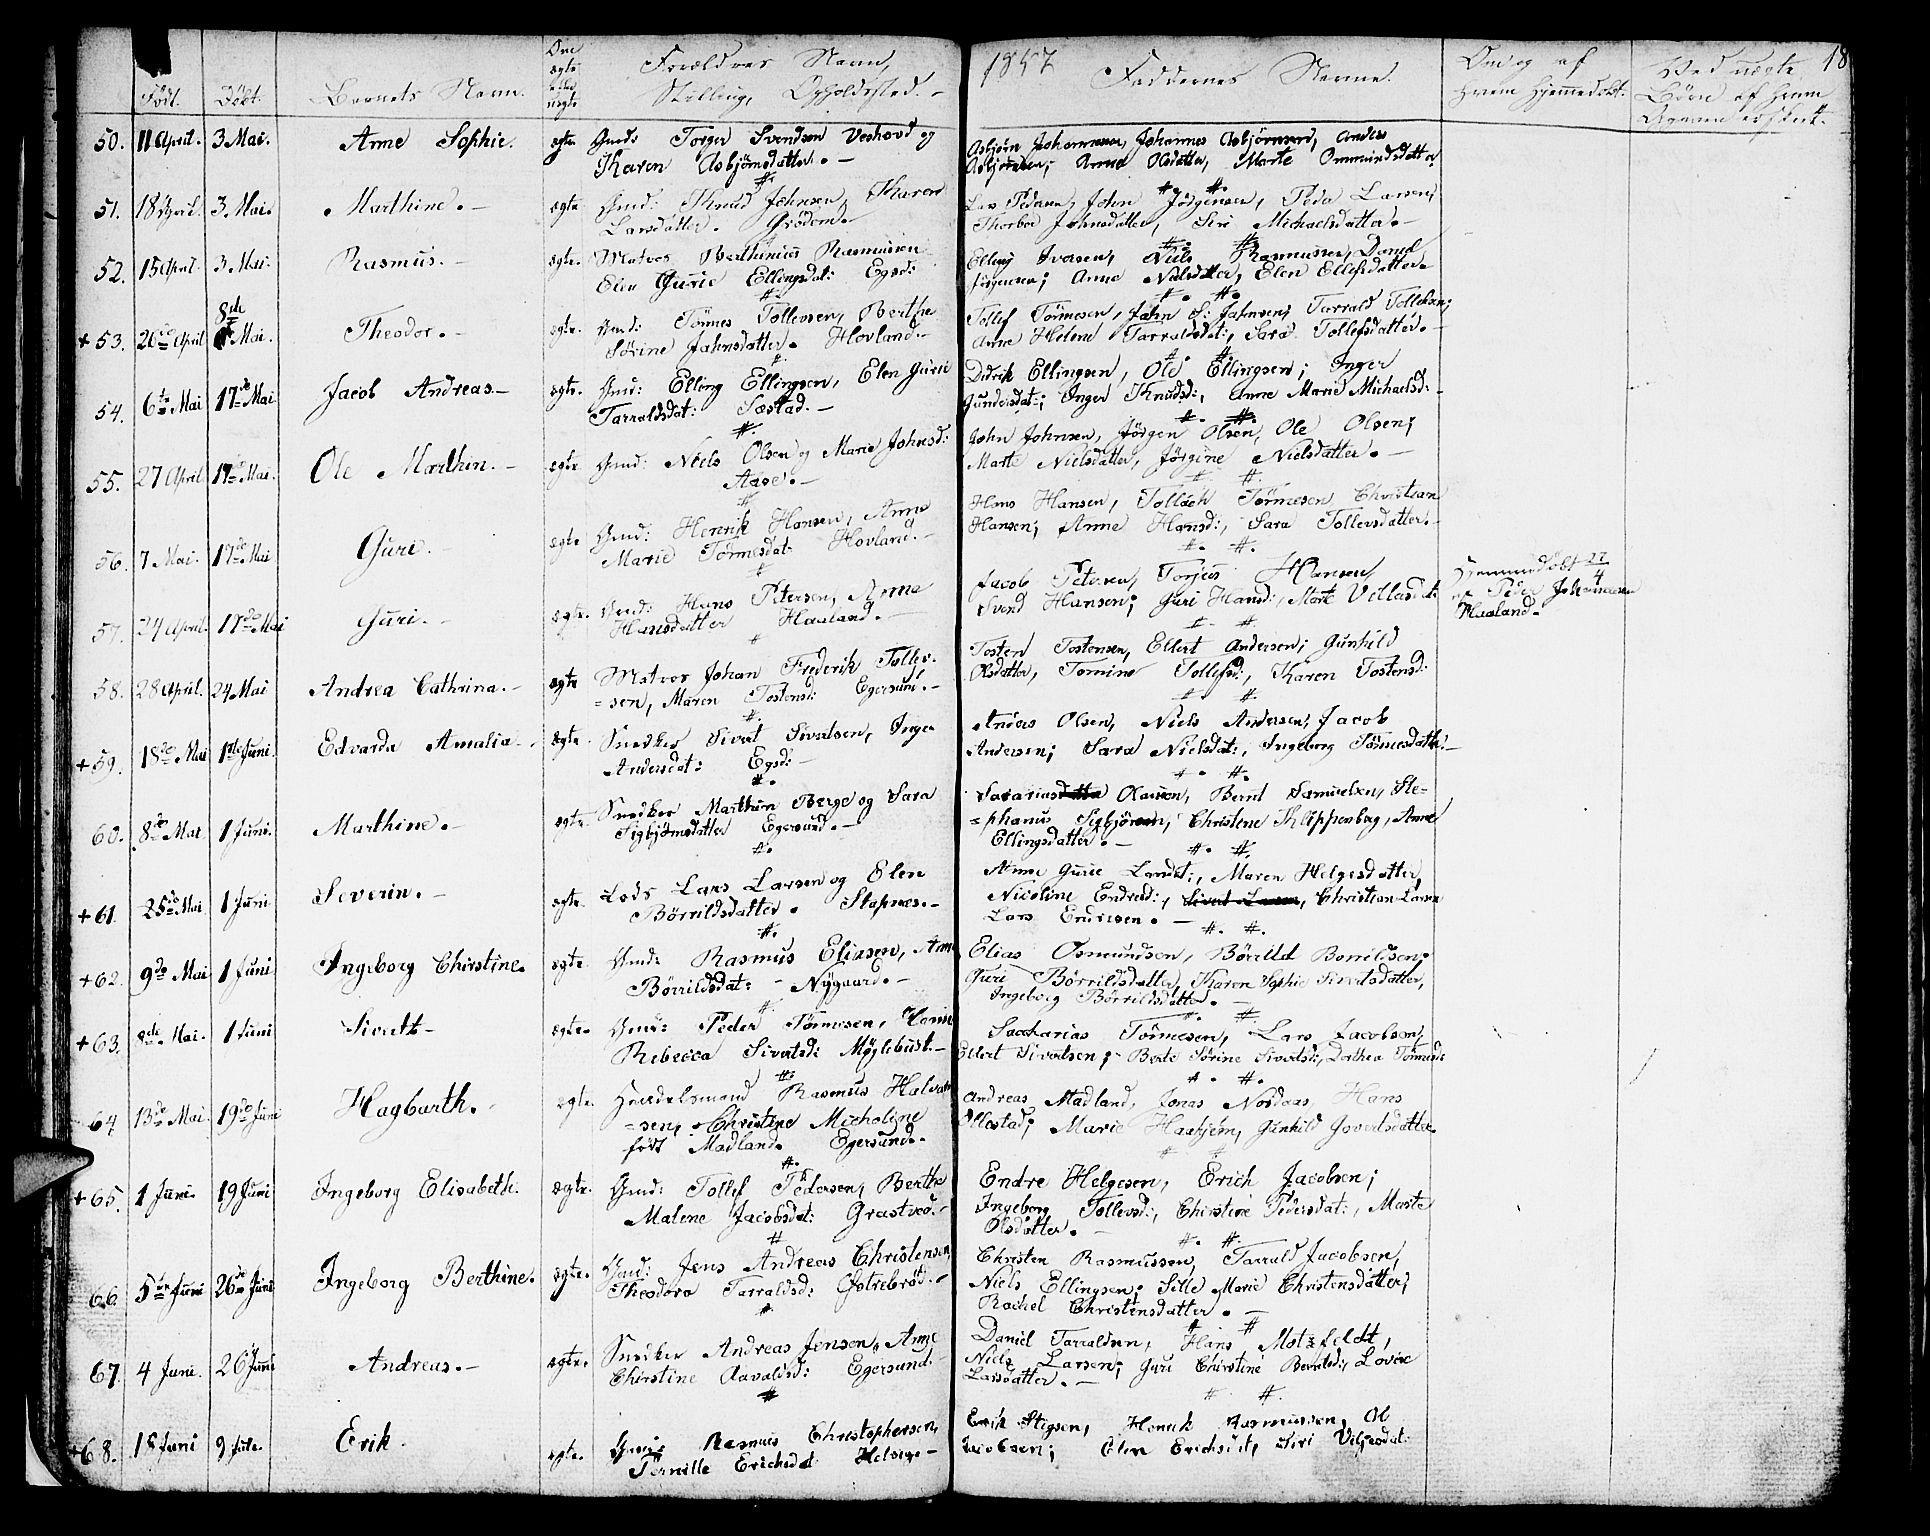 1857
18
Født. Døbt. Barnets Navn. Om ægte eller uægte Forældres Navn, Stilling, Opholdssted. Faddernes Navne. Om og af hvem hjemmedøbt. Ved uægte Børn af hvem
50. 11 April. 3 Mai. Anne Sophie. ægte Gmd: Torger Svendsen Veshovd og Asbjørn Johannesen, Johannes Asbjørnsen, Anders
Karen Asbjørnsdatter. Asbjørnsen; Anna Olsdatter, Marte Ommundsdatter
51. 18 April. 3 Mai. Marthine. ægte Gmd: Knud Johnsen, Karen Lars Pedersen, John Jørgensen, Peder Larsen;
Larsdatter. Grødem. Thorbor Johnsdatter, Siri Michaelsdatter.
52. 15 April. 3 Mai. Rasmus. ægte. Matros Berthinius Rasmussen Elling Iversen, Niels Rasmussen, Daniel
Elen Gurie Ellingsdat: Egsd: Jørgensen; Anne Nielsdatter, Elen Ellefsdatter
+53. 26de April 8de Mai. Theodor. ægte. Gmd: Tønnes Tollevsen, Berthe Tollef Tønnesen, Jahn S: Jahnsen; Tarrald Tollefsen;
Sørine Jahnsdatter. Hovland. Anne Helene Tarraldsdat:, Sara Tollefsdatter.
54. 6te Mai 17de Mai Jacob Andreas. ægte. Gmd: Elling Ellingsen, Elen Gurie Didrik Ellingsen, Ole Ellingsen; Inger
Tarraldsdat: Sæstad. Gundersdat:; Inger Knudsd:, Anne Marie Michaelsd:
55. 27 April 17de Mai. Ole Marthin. ægte Gmd: Niels Olsen og Marie Johnsd: John Johnsen, Jørgen Olsen, Ole Olsen;
Aase. Marte Nielsdatter, Jørgine Nielsdatter.
56. 7 Mai. 17de Mai Guri. ægte Gmd: Henrik Hansen, Anne Hans Hansen, Tollach Tønnesen Christian
Marie Tønnesdat: Hovland. Hansen; Anne Hansd:, Sara Tollevsdatter.
57. 24 April. 17de Mai Guri. ægte. Gmd: Hans Petersen, Anne Jacob Petersen, Torjus Hansen, Hjemmedøbt 27/4
Hansdatter Haaland. Svend Hansen; Guri Hansd:, Marte Villasdat: af Peder Johannesen
Haaland.
58. 28 April. 24 Mai Andrea Cathrina. ægte Matros Johan Frederik Tollev- Tosten Tostensen, Ellert Andersen; Gunhild
=sen, Maren Tostensd: Egersund. Olsdatter, Tomine Tollefsd:, Karen Tostensd:
+59. 18de Mai 1ste Juni. Edvarda Amalia. ægte. Snedker Sivert Sivertsen, Inger Anders Olsen, Niels Andersen, Jacob
Andersdat: Egsd: Andersen; Sara Nielsdat:, Ingeborg Tønnesdatter.
60. 8de Mai 1 Juni. Marthine. ægte. Snedker Marthin Berge og Sara Sacarias Olausen, Bernt Samuelsen, Ste=
Sigbjørnsdatter Egersund. =phanus Sigbjørnsen; Christine Klippenberg, Anne
Ellingsdatter.
+61. 25de Mai 1 Juni Severin. ægte. Lods Lars Larsen og Elen Anne Gurie Larsdt:, Maren Helgesdatter,
Børrildsdatter. Stapnes. Nicoline Endresd:, Sivert Larsen, Christian Larsen
Lars Endresen.
+62. 9de Mai 1 Juni Ingeborg Christine. ægte Gmd: Rasmus Eliasen, Anne Elias Osmundsen, Børild Borrildsen;
Børrildsdat: Nygaard. Guri Børrildsdatter, Karen Sophie Sivertsdatter,
Ingeborg Børrildsdatter.
+63. 8de Mai. 1 Juni Siverth ægte. Gmd: Peder Tønnesen, Saccharias Tønnesen, Lars Jacobsen,
Rebecca Sivertsd: Myglebust. Ellert Sivertsen; Berte Sørine Sivertsd:, Dorthea Tønnesd:
64. 13de Mai. 19de Juni Hagbarth. ægte. Handelsmand Rasmus Halvor Andreas Madland, Jonas Nordaas, Hans
=sen, Christine Micholine Ollestad; Marie Haakjem, Gunhild Govertsdatter.
født Madland. Egersund.
+65. 1 Juni. 19 Juni Ingeborg Elisabeth. ægte. Gmd: Tollef Pedersen, Berthe Endre Helgesen, Erich Jacobsen;
Malene Jacobsdat: Grastved. Ingeborg Tollevsd:, Christine Pedersdat:, Marte
Olsdatter.
66. 5te Juni 26de Juni Ingeborg Berthine. ægte. Gmd: Jens Andreas Christensen, Christen Rasmussen, Tarrald Jacobsen,
Theodora Tarraldsd: Østrebrød. Niels Ellingsen; Sille Marie Christensdatter;
Rachel Christensdatter.
67. 4 Juni. 26 Juni Andreas. ægte. Snedker Andreas Jensen, Anne Daniel Tarraldsen, Hans Motzfeldt,
Christine Aavaldsd: Egersund. Niels Larsen; Guri Christine Berntsd:, Lovise
Larsdatter.
+68. 18 Juni 9 Jule. Erik. ægte. Gmd: Rasmus Christophersen, Erik Stigsen, Henrik Rasmussen, Ol
Pernille Erichsdat: Helvig. Jacobsen; Elen Erichsdat, Siri Viljesdat: